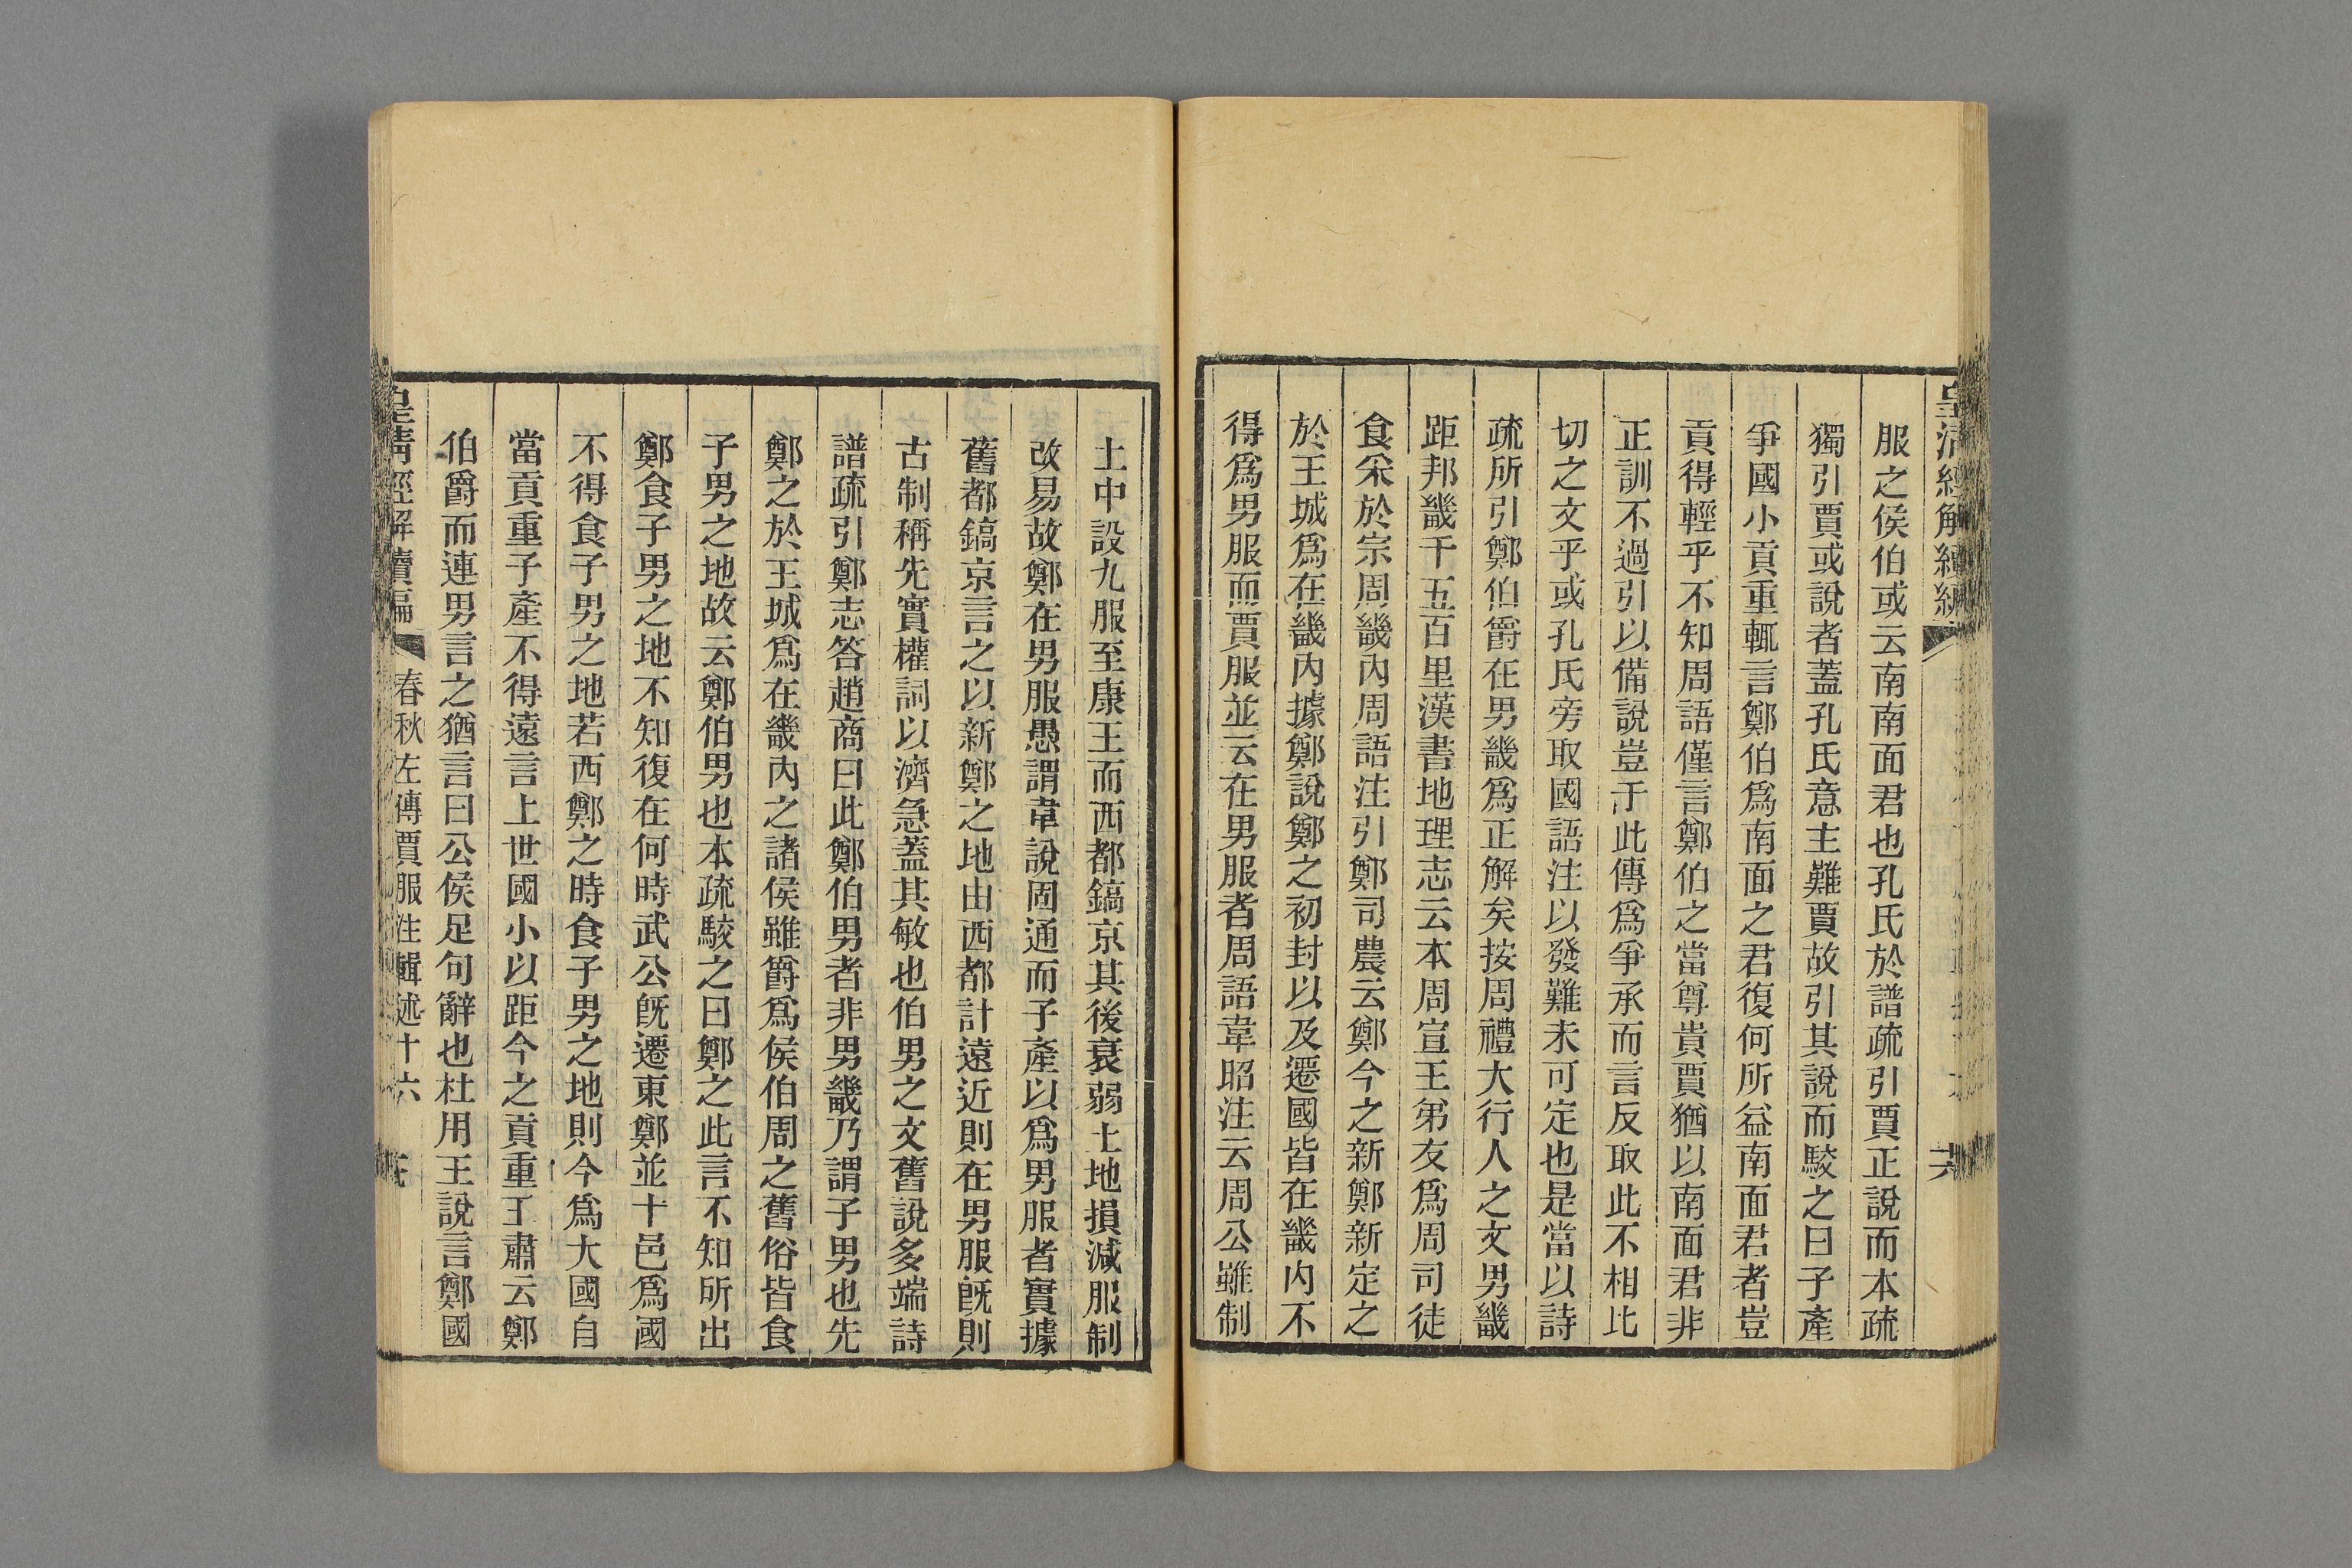 服之侯伯或云南南面君也孔氏於譜疏引賈正說而本疏
獨引賈或說者蓋孔氏意主難賈故引其說而駮之曰子產
爭國小貢重輒言鄭伯爲南面之君復何所益南面君者豈
貢得輕乎不知周語僅言鄭伯之當尊貴賈猶以南面君非
正訓不過引以備說豈于此傳爲爭承而言反取此不相比
切之文乎或孔氏旁取國語注以發難未可定也是當以詩
疏所引鄭伯爵在男畿爲正解矣按周禮大行人之文男畿
距邦畿千五百里漢書地理志云本周宣王弟友爲周司徒
食采於宗周畿內周語注引鄭司農云鄭今之新鄭新定之
於王城爲在畿內據鄭說鄭之初封以及遷國皆在畿內不
得爲男服而賈服並云在男服者周語韋昭注云周公雖制
土中設九服至康王而西都鎬京其後衰弱土地損減服制
改易故鄭在男服愚謂韋說固通而子產以爲男服者實據
舊都鎬京言之以新鄭之地由西都計遠近則在男服旣則
古制稱先實權詞以濟急蓋其敏也伯男之文舊說多端詩
譜疏引鄭志答趙商曰此鄭伯男者非男畿乃謂子男也先
鄭之於王城爲在畿內之諸侯雖爵爲侯伯周之舊俗皆食
子男之地故云鄭伯男也本疏駮之曰鄭之此言不知所出
鄭食子男之地不知復在何時武公旣遷東鄭並十邑爲國
不得食子男之地若西鄭之時食子男之地則今爲大國自
當貢重子產不得遠言上世國小以距今之貢重王肅云鄭
伯爵而連男言之猶言曰公侯足句辭也杜用王說言鄭國
皇清經解續編 春秋左傳賈服注輯述十六